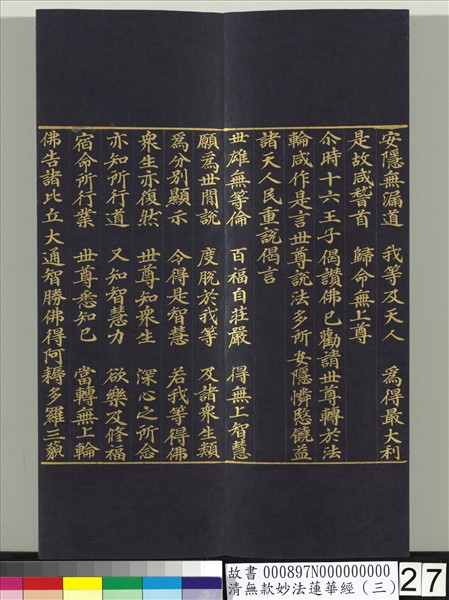 安隱無漏道　我等及天人　為得最大利
是故咸稽首　歸命無上尊
尒時十六王子偈讚佛已勸請世尊轉於法
輪咸作是言世尊說法多所安隱憐愍饒益
諸天人民重說偈言
世雄無等倫　百福自莊嚴　得無上智慧
願為世閒說　度脫於我等　及諸衆生類
為分别顯示　令得是智慧　若我等得佛
衆生亦復然　世尊知衆生　深心之所念
亦知所行道　又知智慧力　欲樂及修福
宿命所行業　世尊悉知已　當轉無上輪
佛告諸比丘大通智勝佛得阿耨多羅三藐
故書 000897N000000000
清無款妙法蓮華經（三）
27